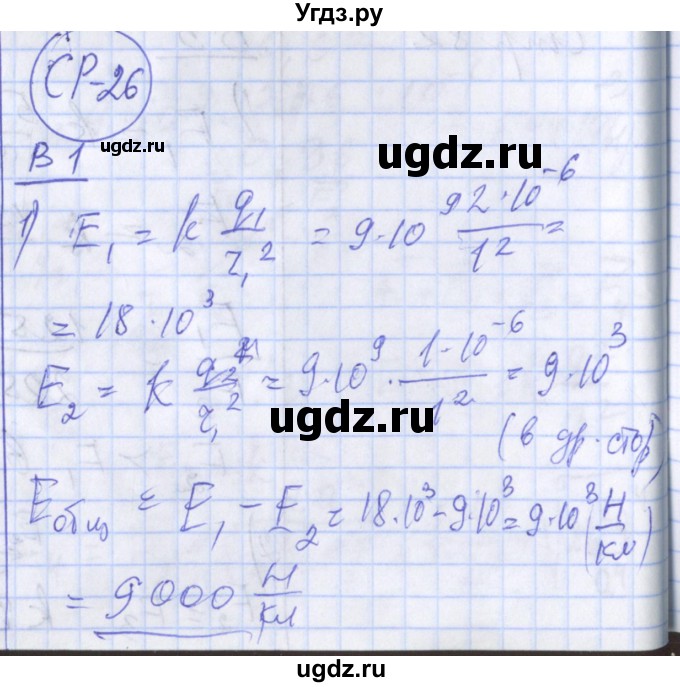 Угдз.ру
СР-26
ugdz.ru
ugdz.ru
В 1
1) E₁ = k q₁/r₁² = 9·10⁹ 2·10⁻⁶/1² =
= 18·10³
ugdz.ru
E₂ = k q₂/r₁² = 9·10⁹ · 1·10⁻⁶/1² = 9·10³
ugdz.ru
(в др. стор)
Eобщ = E₁ - E₂ = 18·10³ - 9·10³ = 9·10³ (Н/кл)
= 9000 Н/кл
ugdz.ru
ugdz.ru